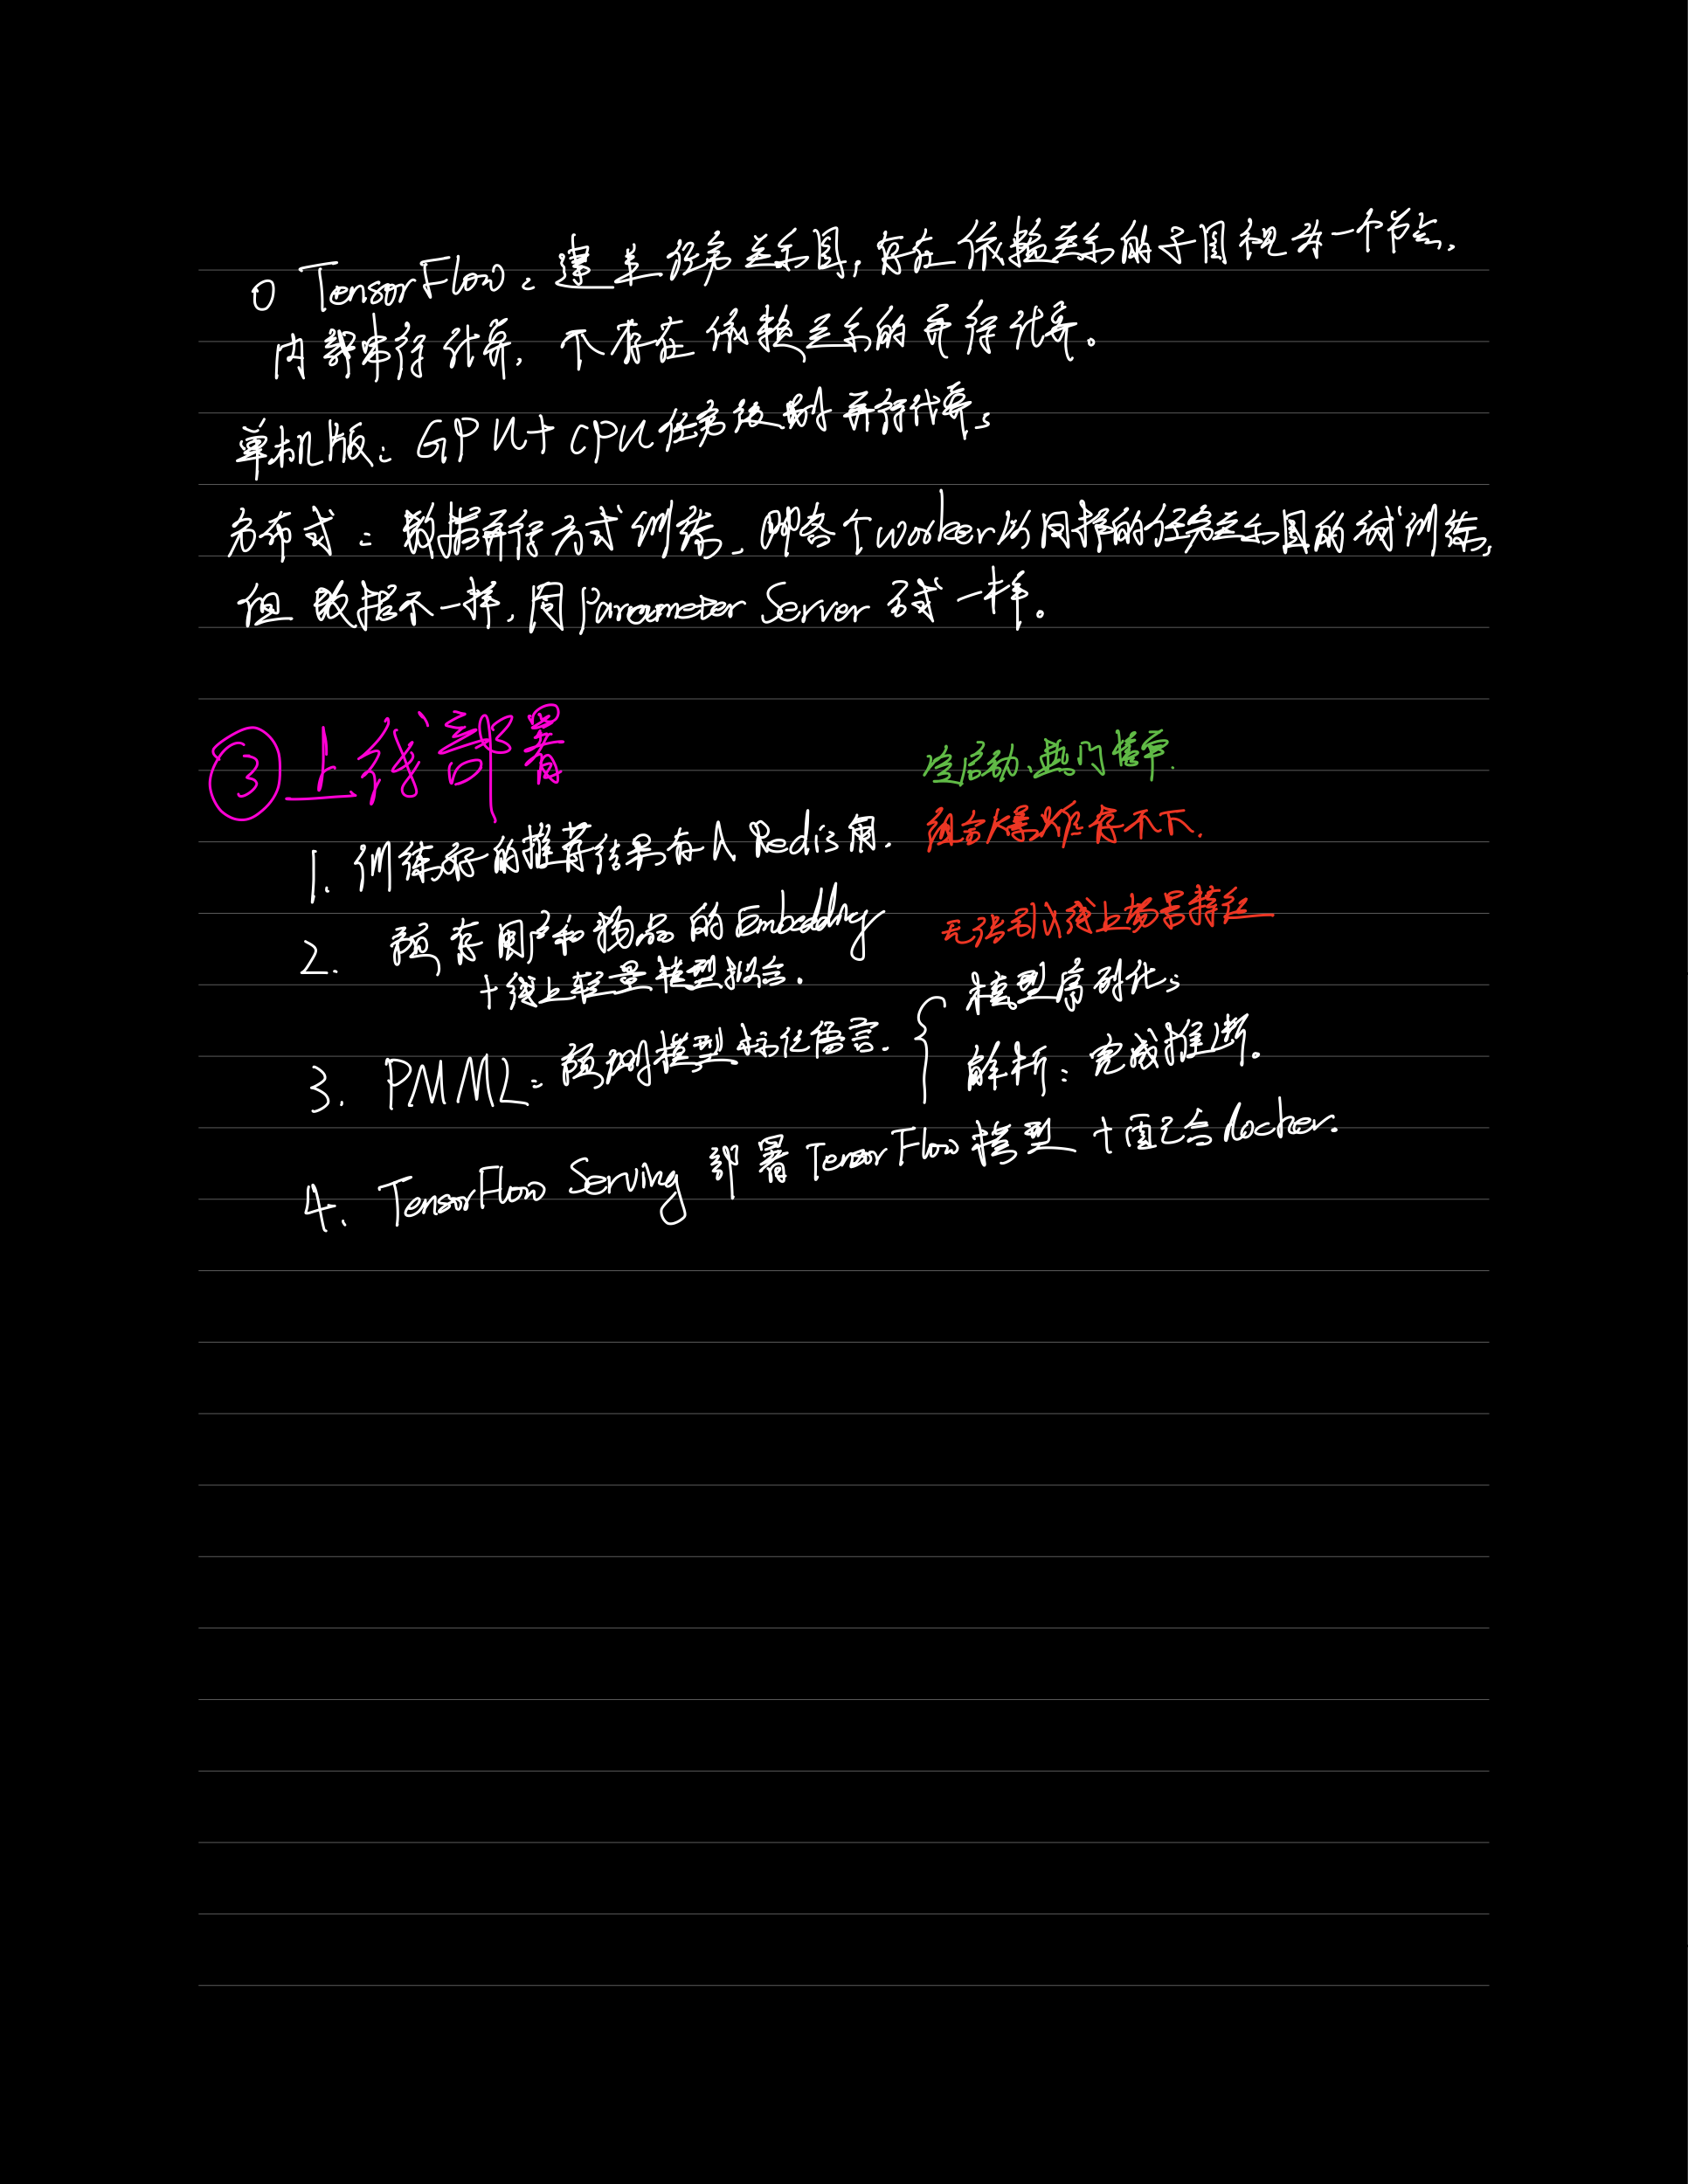 ○ TensorFlow：建立任务关系图，存在依赖关系的子图视为一个节点，
内部串行计算，不存在依赖关系的并行计算。
单机版：GPU+CPU任务级别并行计算；
分布式：数据并行方式训练，即各个worker以同样的任务关系图的方式训练，
但数据不一样，同Parameter Server方式一样。
③上线部署
冷启动、热门榜单.
1. 训练好的推荐结果存入Redis用.
组合爆炸存不下.
2. 预存用户和物品的Embedding
无法引入线上场景特征
+线上轻量模型拟合.
3. PMML：预测模型标记语言.
模型序列化；
解析：完成推断。
4. TensorFlow Serving 部署TensorFlow模型+配合docker.